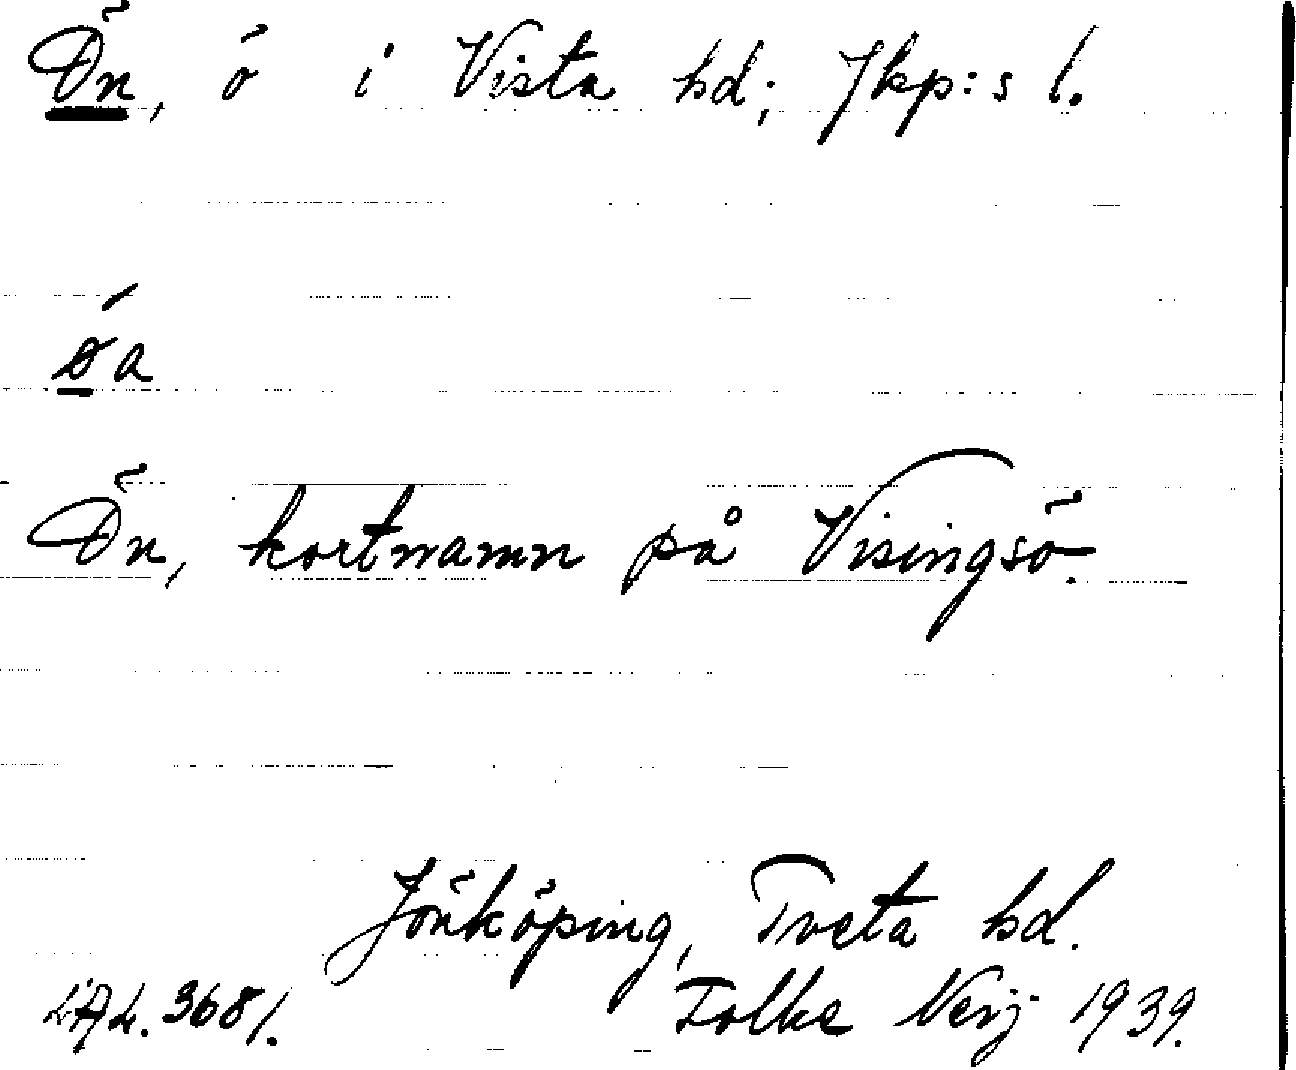 Ön, ö i Vista hd; Jkp:s l.
Ön, kortnamn på Visingsö.
Jönköping, Tveta hd.
Folke Neij 1939.